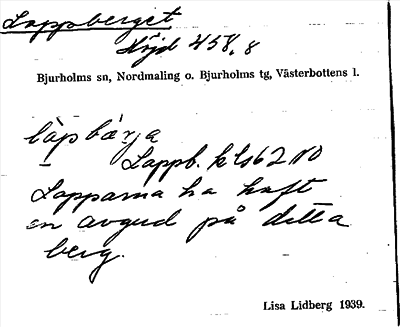 Lappberget
Höjd 458,8
Bjurholms sn, Nordmaling o. Bjurholms tg, Västerbottens l.
làpbærja
Lappb. kls62NO
Lapparna ha haft
en avgud på detta
berg.
Lisa Lidberg 1939.